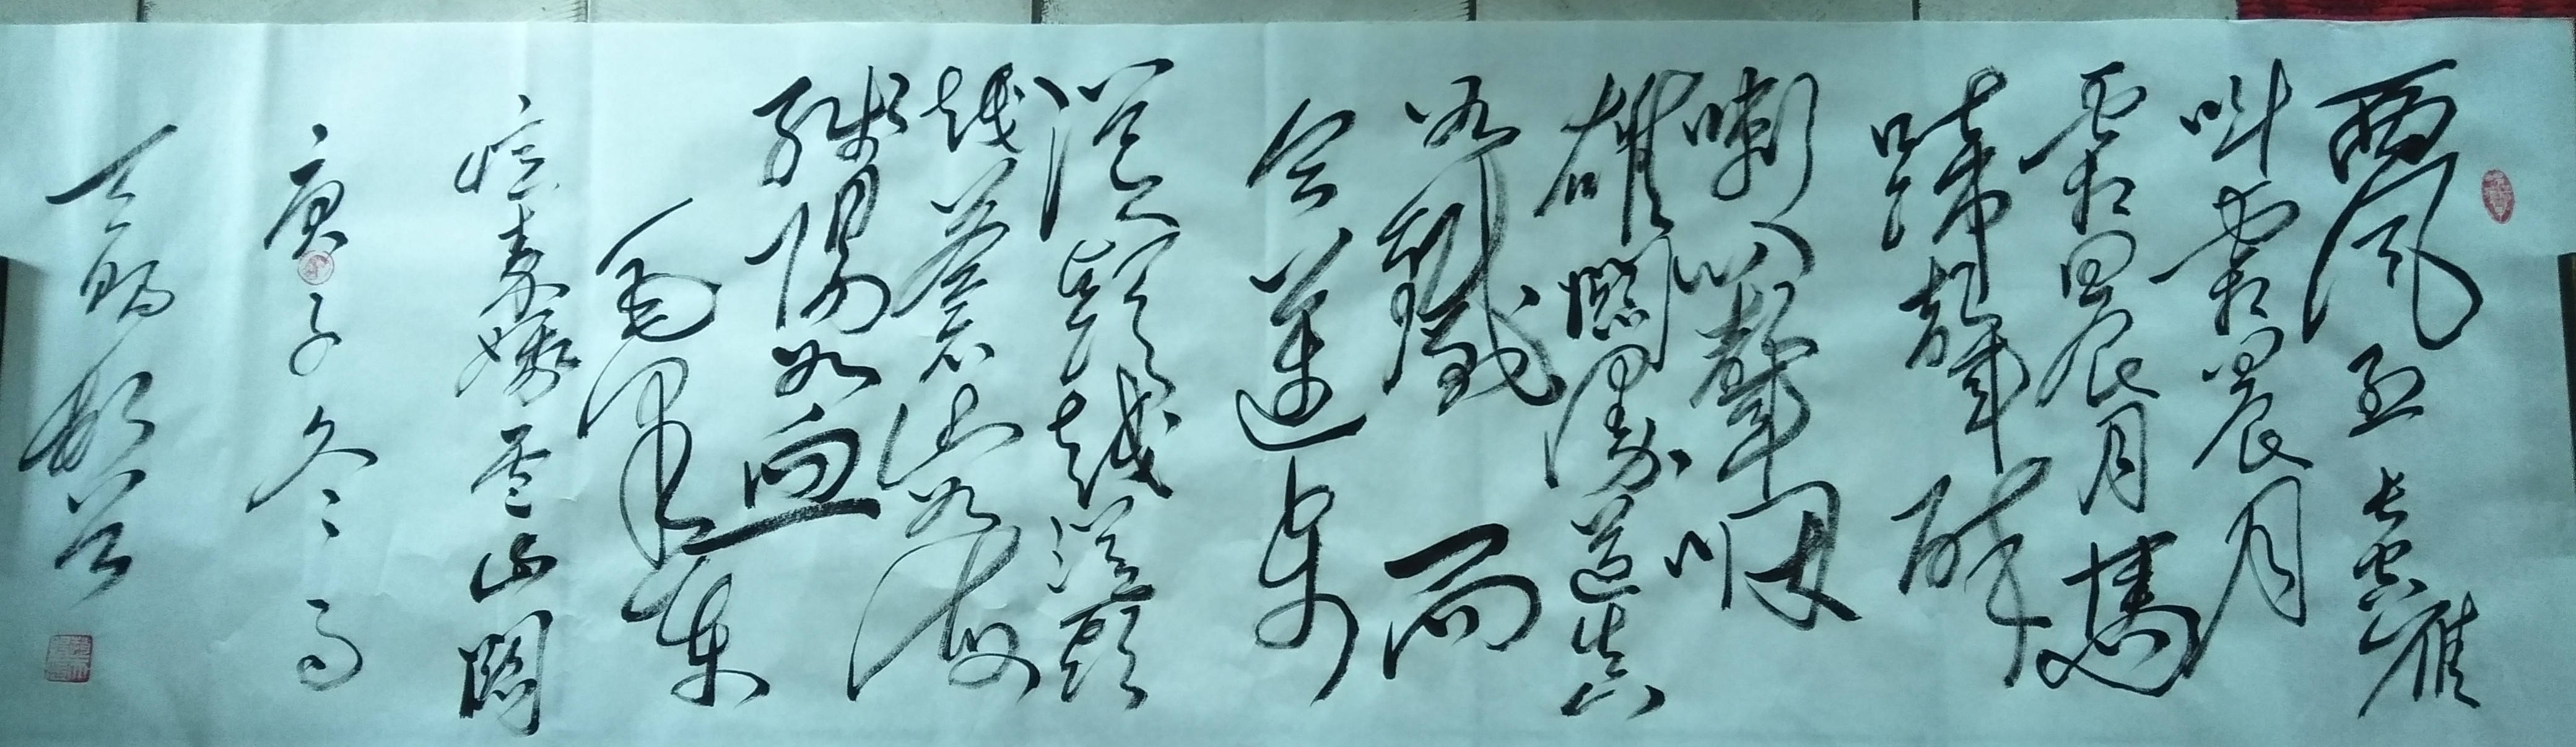 西風烈長空雁
叫霜晨月
霜晨月馬
蹄聲碎
喇叭聲咽
雄關漫道真
如鐵而
今邁步
從頭越從頭
越蒼山如海
殘陽如血
毛澤東
憶秦娥婁山關
庚子冬